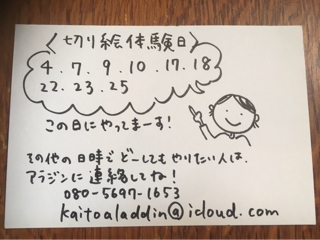 切り絵体験日
4.7.9.10.17.18
22.23.25
この日にやってまーす!
その他の日時でどーしてもやりたい人は、
アラジンに連絡してね!
080-5697-1653
kaitoaladdin@icloud.com